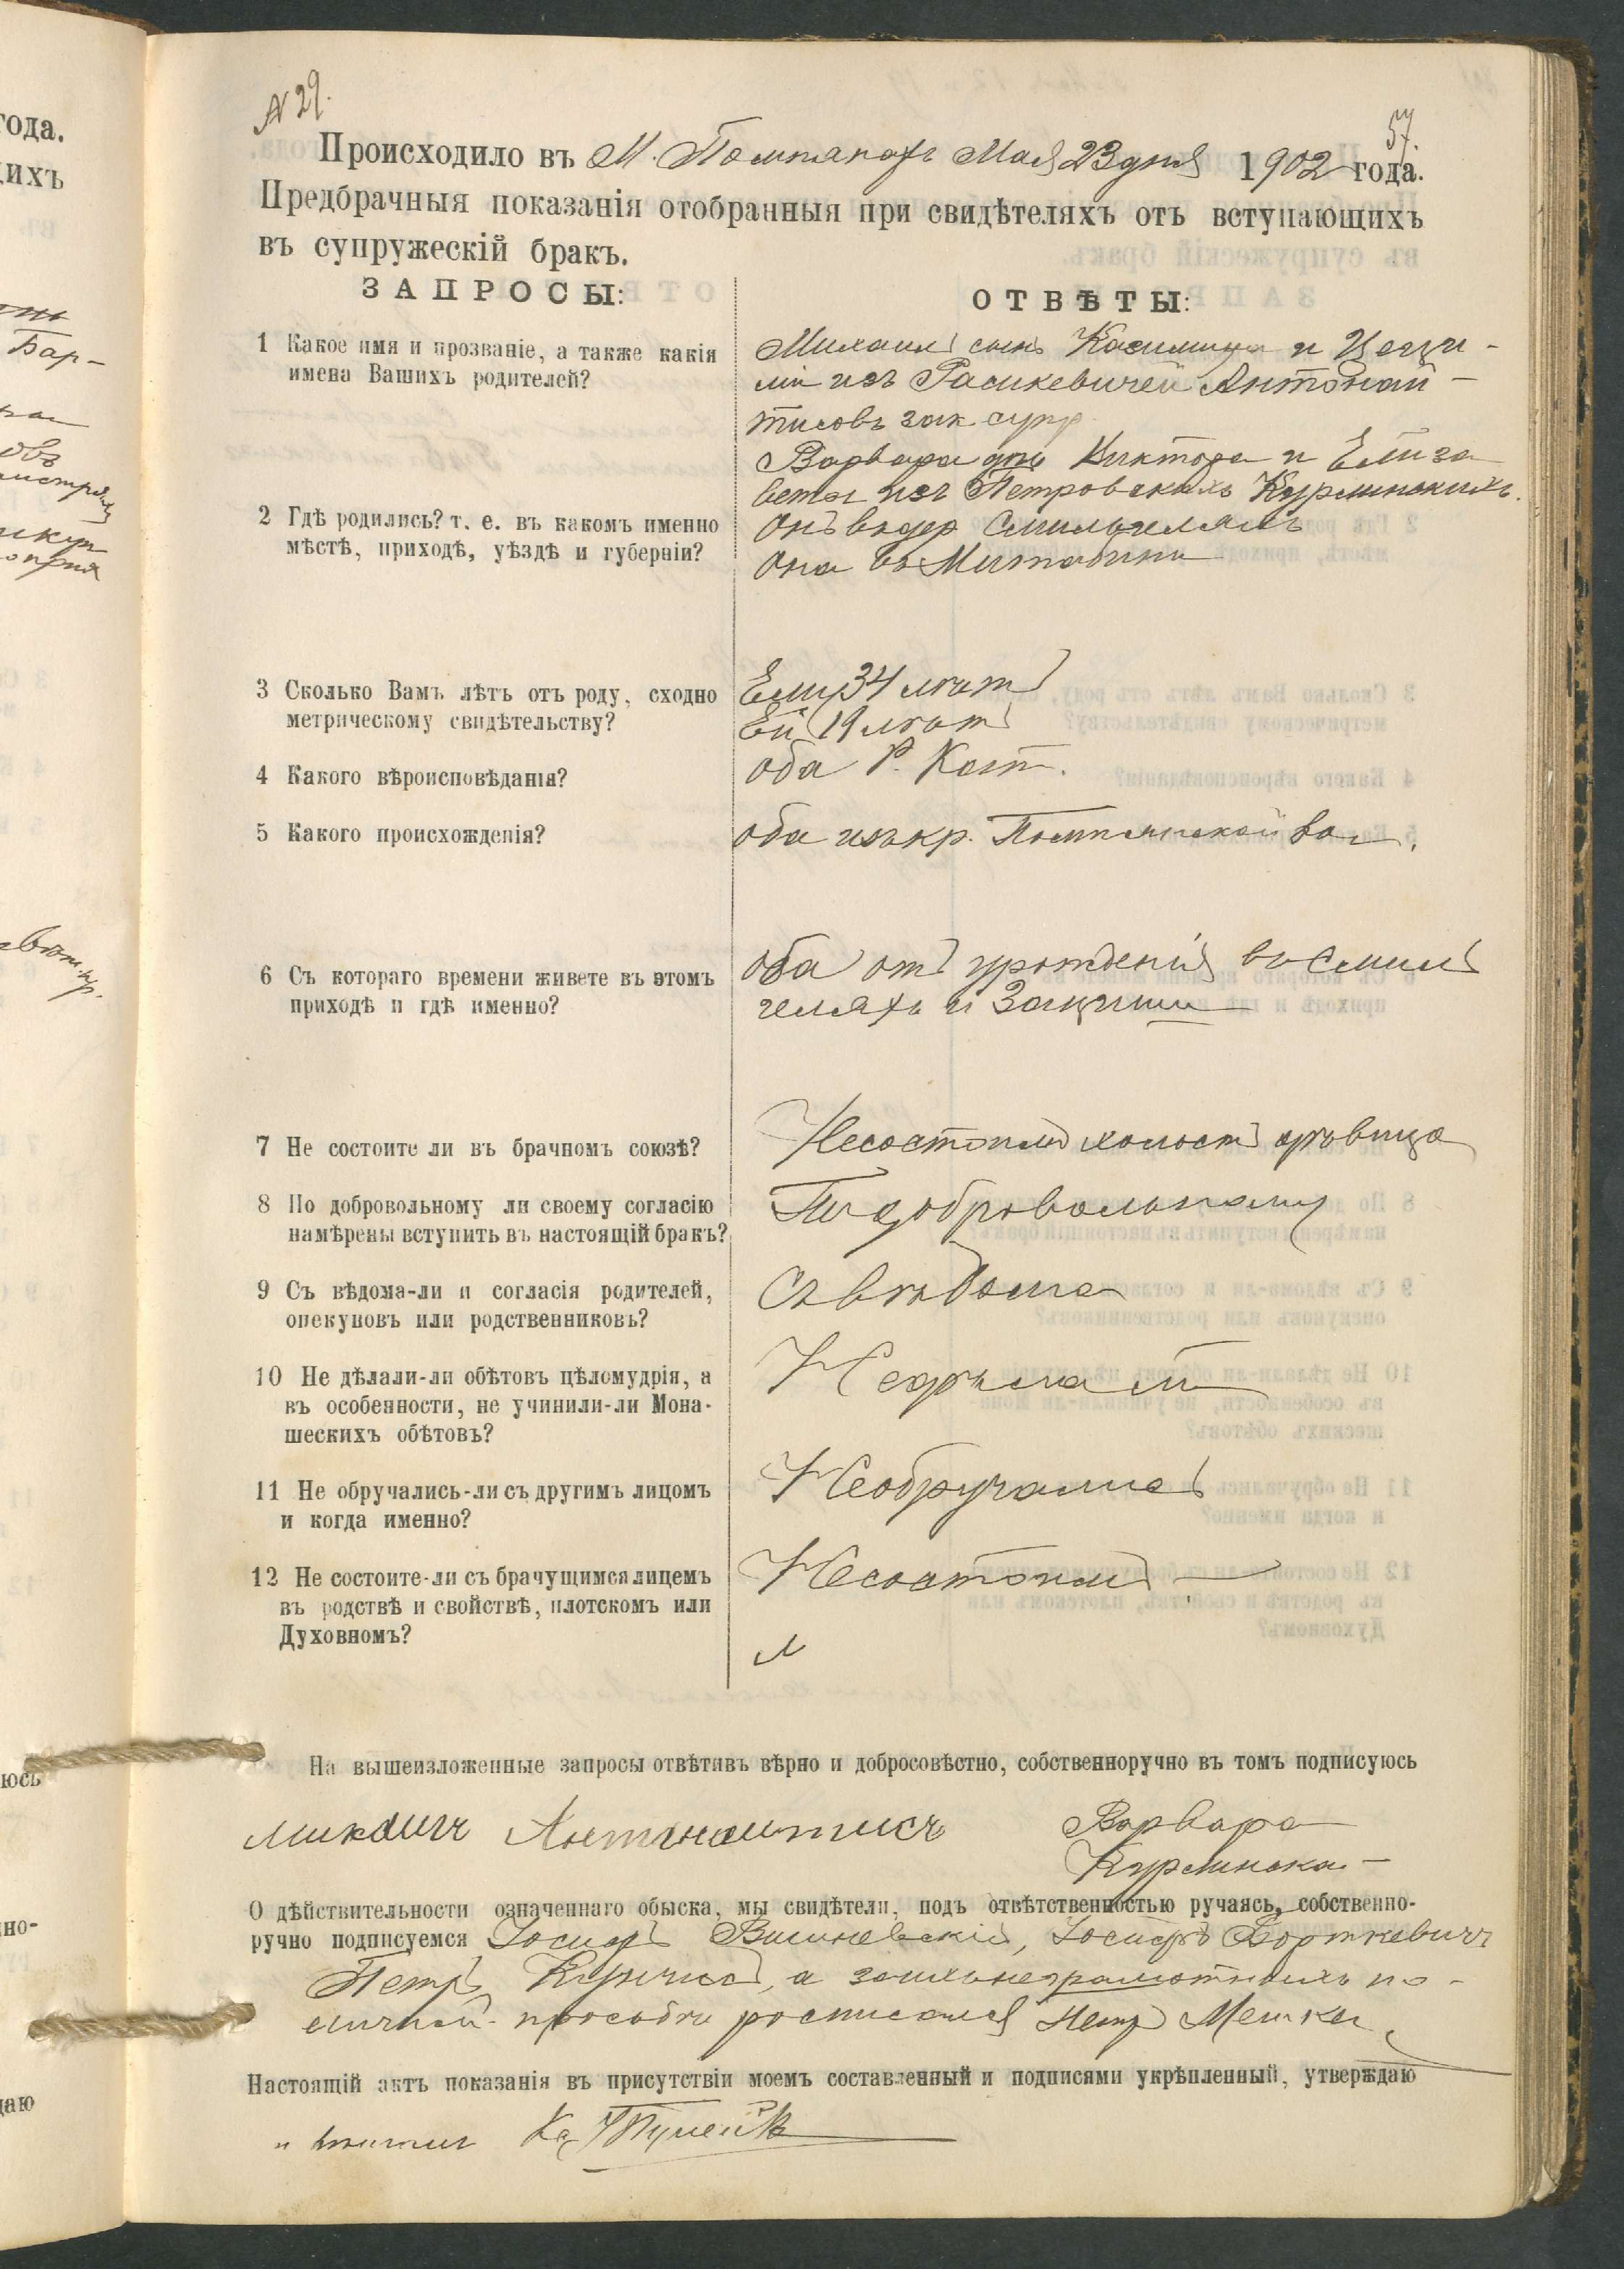 N 29.
57.
Происходило въ М. Помпянахъ Мая 23 дня 1902 года.
Предбрачныя показанія отобранныя при свидѣтеляхъ отъ вступающихъ
въ супружескій бракъ.
ЗАПРОСЫ:
ОТВѢТЫ:
1 Какое имя и прозваніе, а также какія
имена Вашихъ родителей?
Михаилъ сынъ Казимира и Цеци-
ліи изъ Рашкевичей Антонай-
тисовъ зак. супр.
Варвара дчь Виктора и Елиза
веты изъ Петровскихъ Курминскихъ.
2 Гдѣ родились? т. е. въ какомъ именно
мѣстѣ, приходѣ, уѣздѣ и губерніи?
Онъ въ дер Смильгеляхъ
Она въ
3 Сколько Вамъ лѣтъ отъ роду, сходно
метрическому свидѣтельству?
Ему 34 лѣтъ
Ей 19 лѣтъ
4 Какого вѣроисповѣданія?
оба Р. Кат.
5 Какого происхожденія?
оба изъ кр. Помпянской вол.
6 Съ котораго времени живете въ этомъ
приходѣ и гдѣ именно?
оба отъ урожденія въ Смиль
геляхъ и
7 Не состоите ли въ брачномъ союзѣ?
Несостоимъ холостъ дѣвица
8 По добровольному ли своему согласію
намѣрены вступить въ настоящій бракъ?
По добровольному
9 Съ вѣдома-ли и согласія родителей,
опекуновъ или родственниковъ?
Съ вѣдома
10 Не дѣлали-ли обѣтовъ цѣломудрія, а
въ особенности, не учинили-ли Мона-
шескихъ обѣтовъ?
Недѣлали
11 Не обручались-ли съ другимъ лицомъ
и когда именно?
Необручались
12 Не состоите-ли съ брачущимся лицемъ
въ родствѣ и свойствѣ, плотскомъ или
Духовномъ?
Несостоимъ
На вышеизложенные запросы отвѣтивъ вѣрно и добросовѣстно, собственноручно въ томъ подписуюсь
Антонаитисъ Варвара
Курминска
О дѣйствительности означеннаго обыска, мы свидѣтели, подъ отвѣтственностью ручаясь, собственно-
ручно подписуемся Іосифъ Вишневскій, Іосифъ Борткевичъ
Петръ а за ихъ неграмотныхъ по
личной просьбѣ росписался Петръ
Настоящій актъ показанія въ присутствіи моемъ составленный и подписями укрѣпленный, утверждаю